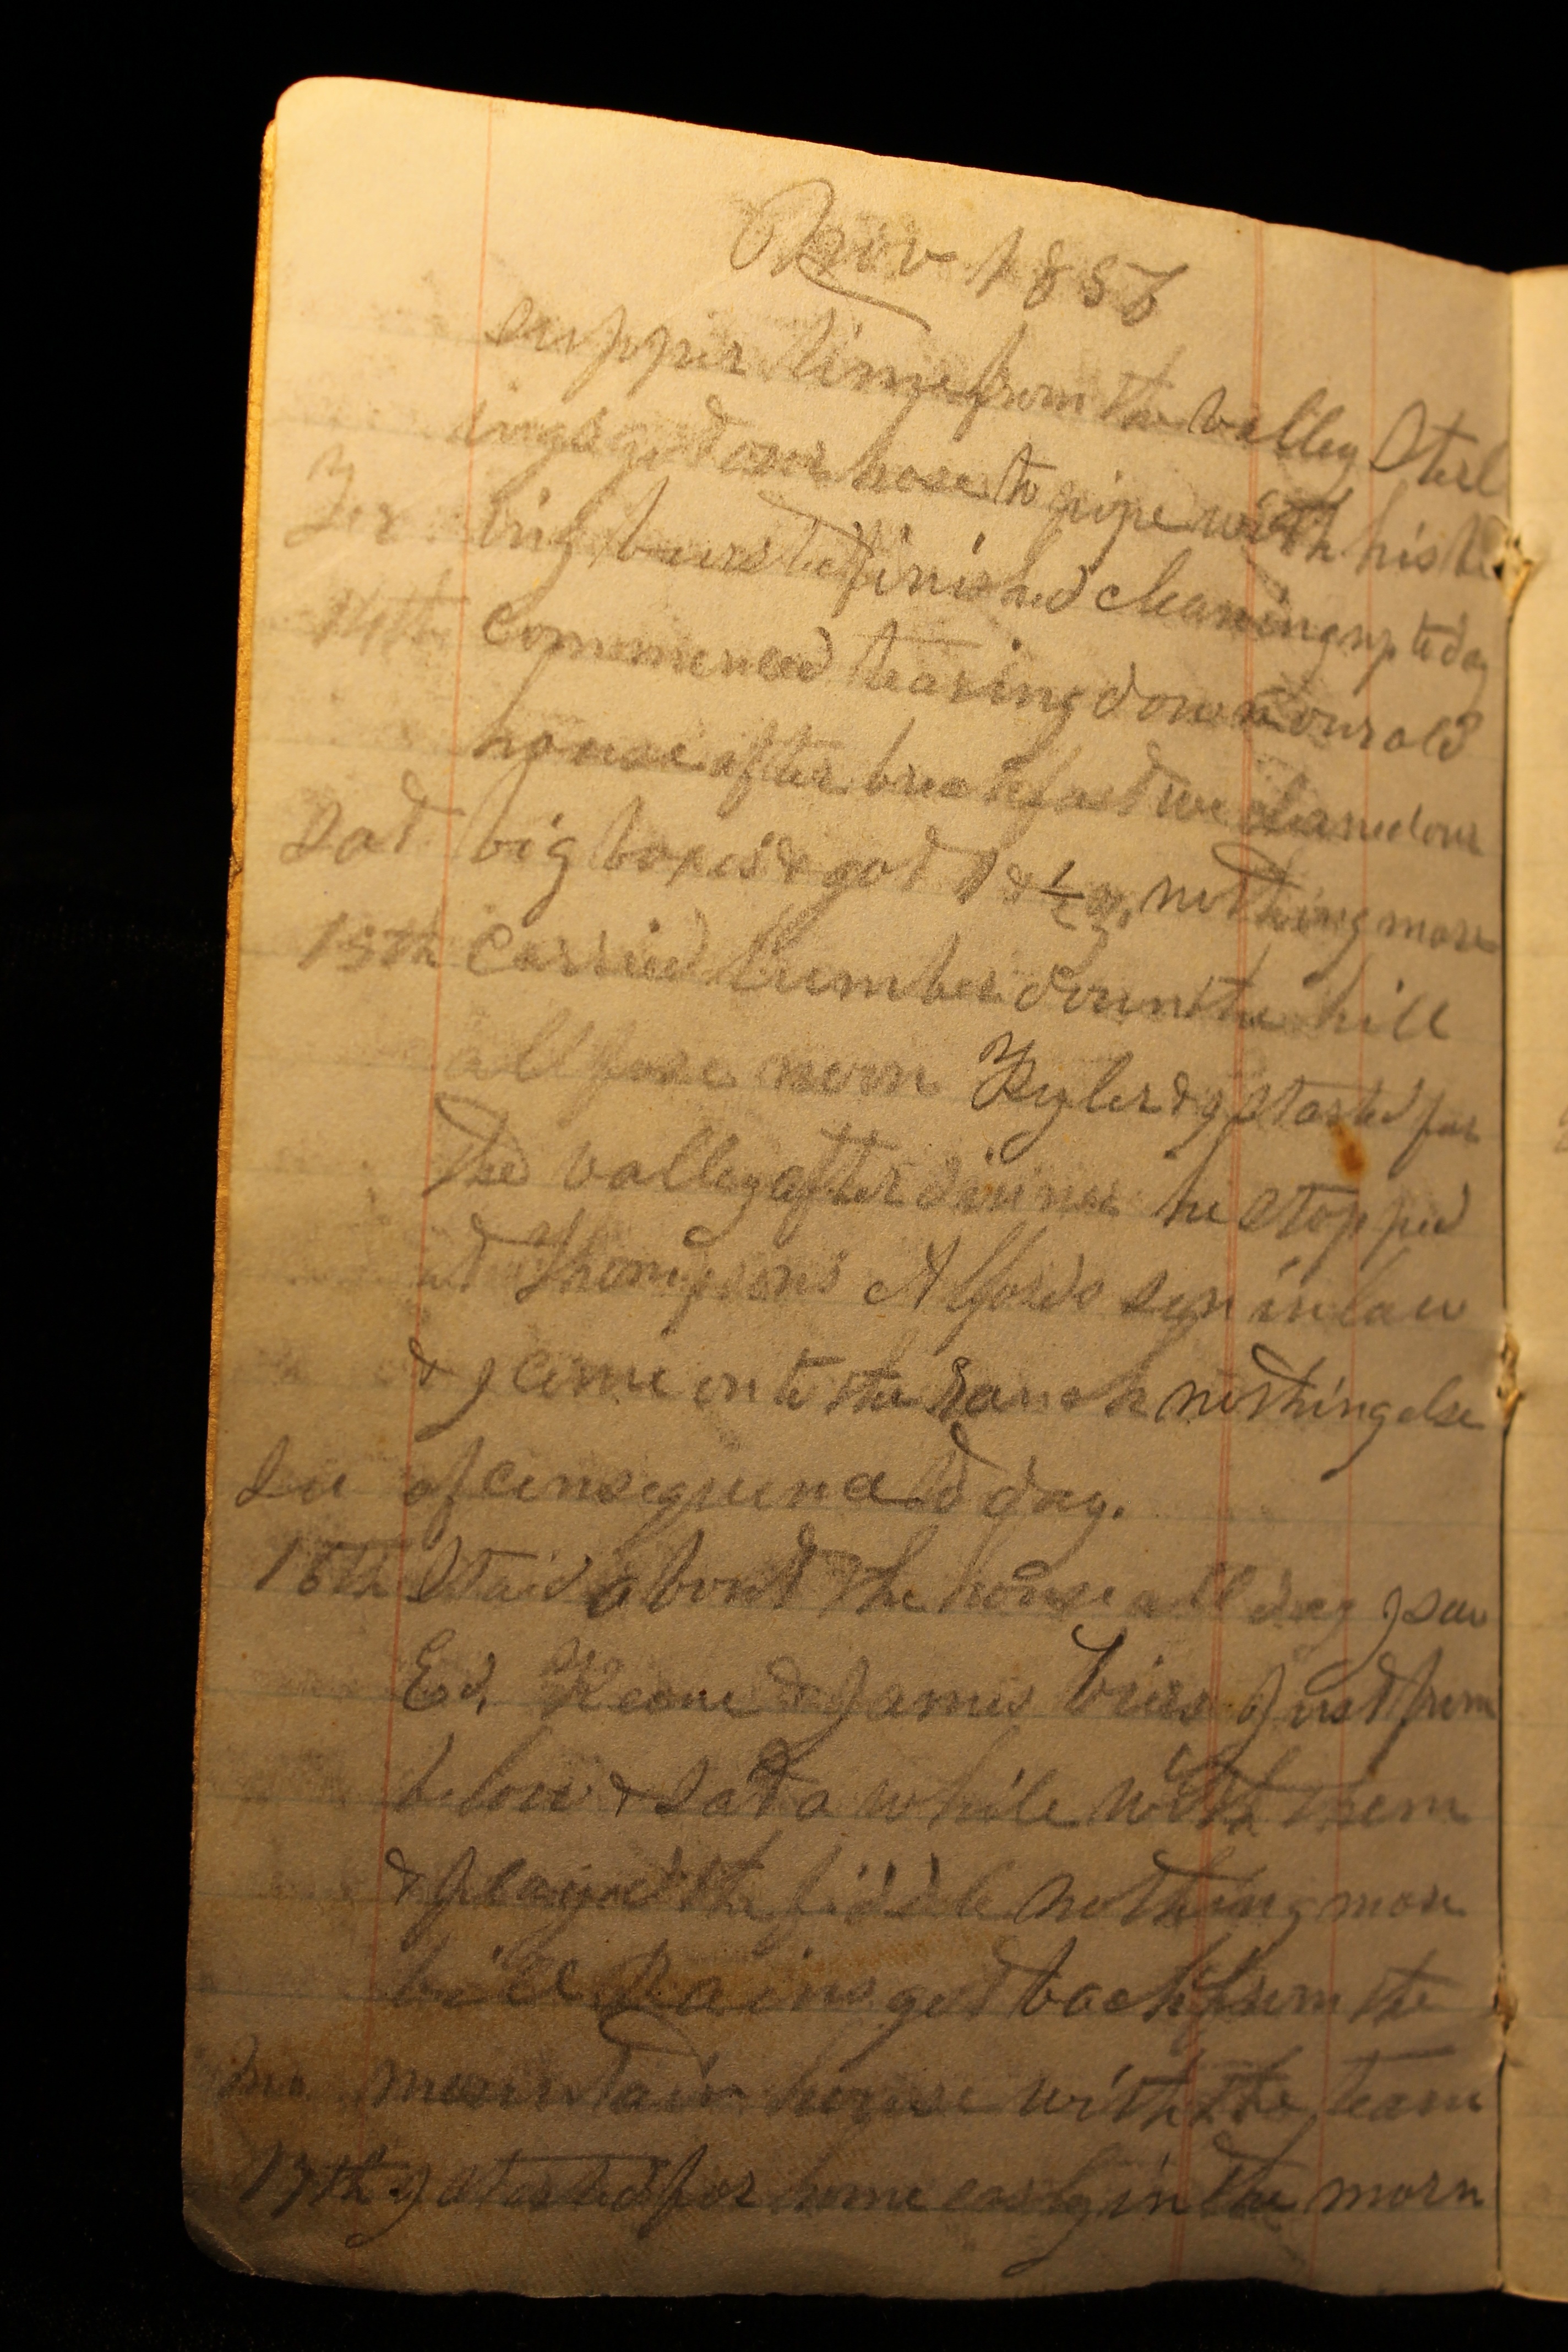 Nov 1856
supper time from the valley Sterl
ings got our hose to pipe with his
Fr big bursted finished cleaning up to day
14th commenced tearing down our old
house after breakfast we cleaned our
Sat big boxes & got & ½ nothing more
15th Carried lumber down the hill
all fore noon Kyler & I started for
the valley after dinner he stopped
at Thompsons Alfords son in law
& I come on to the Ranch nothing else
Su of consequence to day.
16th Staid about the house all day I saw
Ed. Keone & James Bies just from
below & sat a while with them
& played the fiddle nothing more
bill Rains got back from the
Mo. mountain house with the team
17th I started for home early in the morn